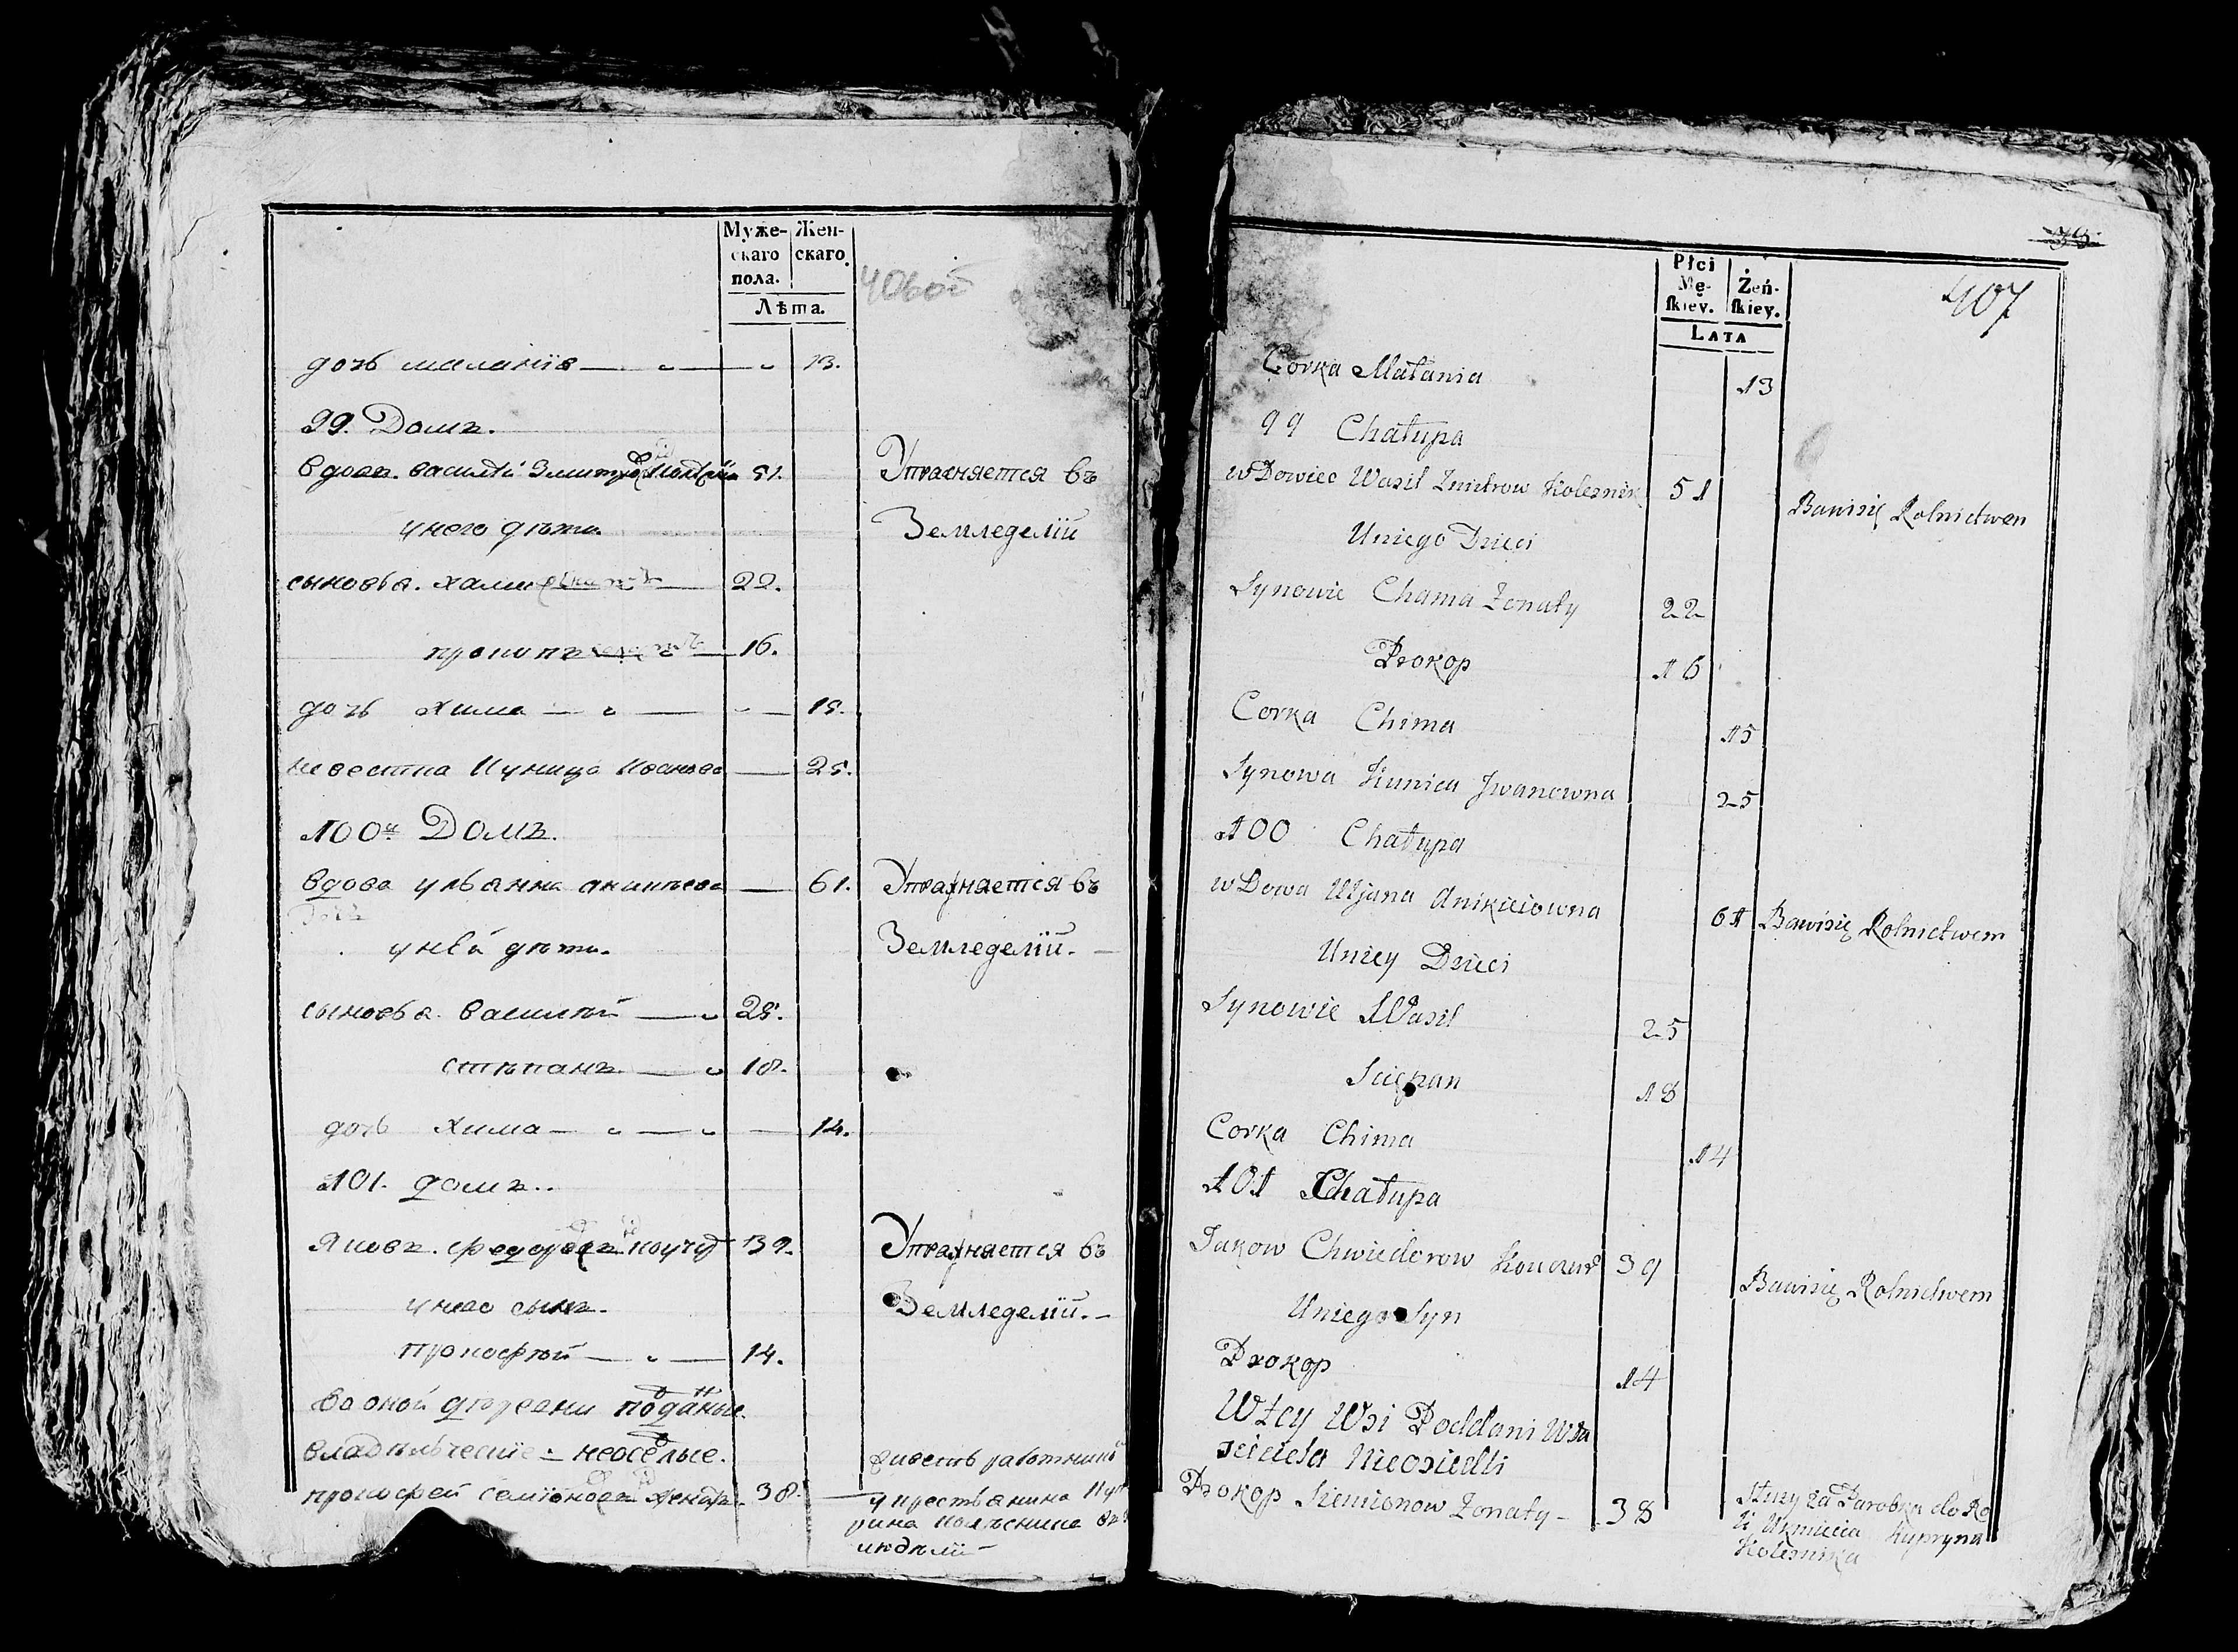 Муже-
скаго
пола.
Жен-
скаго.
Лѣта.
406об
дочь маланія 13.
99. Домъ.
вдовъ. василѣй Змитро 51. Упражняется въ
унего дѣти. Земледеліи
сыновья. хама 22.
прокопъ 16.
дочь хима 15.
невестка Куница Иванова 25.
100й Домъ.
вдова ульянна аникѣева 61. Упражняется въ
унѣй дѣти. Земледеліи.
сыновья василѣй 25.
стѣпанъ 18.
дочь хима 14.
101. домъ.
Яковъ. федоровъ 39. Упражняется въ
унего сынъ. Земледеліи.
прокофѣй 14.
во оной деревни подданые
владельческие неоселые.
прокофей семионовъ женатъ 38.
живетъ работникомъ
у крестьянина
людьми
Płci
Mę-
skiey.
Żeń-
skiey.
LATA
407
Corka Małania 13
99 Chałupa
wDowiec Wasil Zmitrow Kolesnik 51 Bawisię Rolnictwem
Uniego Dzieci
Synowie Chama Żonaty 22
Prokop 16
Corka Chima 15
Synowa Kunica Jwanowna 25
100 Chałupa
wDowa Uljana Anikieiowna 61 Bawisię Rolnictwem
Uniey Dzieci
Synowie Wasil 25
Sciepan 18
Corka Chima 14
101 Chałupa
Jakow Chwiedorow 39 Bawisię Rolnictwem
Uniego Syn
Prokop 14
Wtey Wsi Poddani Wła
sciciela Nieosiedli
Prokop Siemionow Żonaty 38
Służy za Parobka do Ro
li Ukmiecia Kupryna
Kolesnika